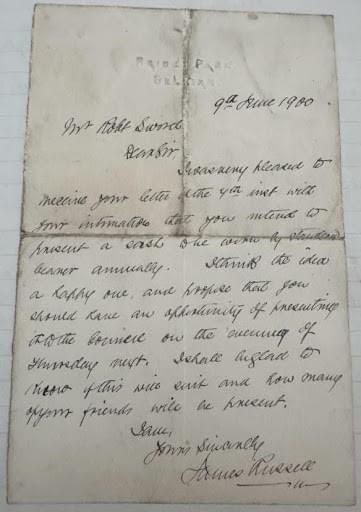 9th June 1900
Mr Robt Sword
Dear Sir,
I was very pleased to
receive your letter of the 4th inst with
your intimation that you intend to
present a sash to be worn by standard
bearer annually. I think the idea
a happy one, and propose that you
should have an opportunity of presenting
it to the Council on the evening of
Thursday next. I shall be glad to
know if this will suit and how many
of your friends will be present.
I am,
Yours Sincerely
James Russell